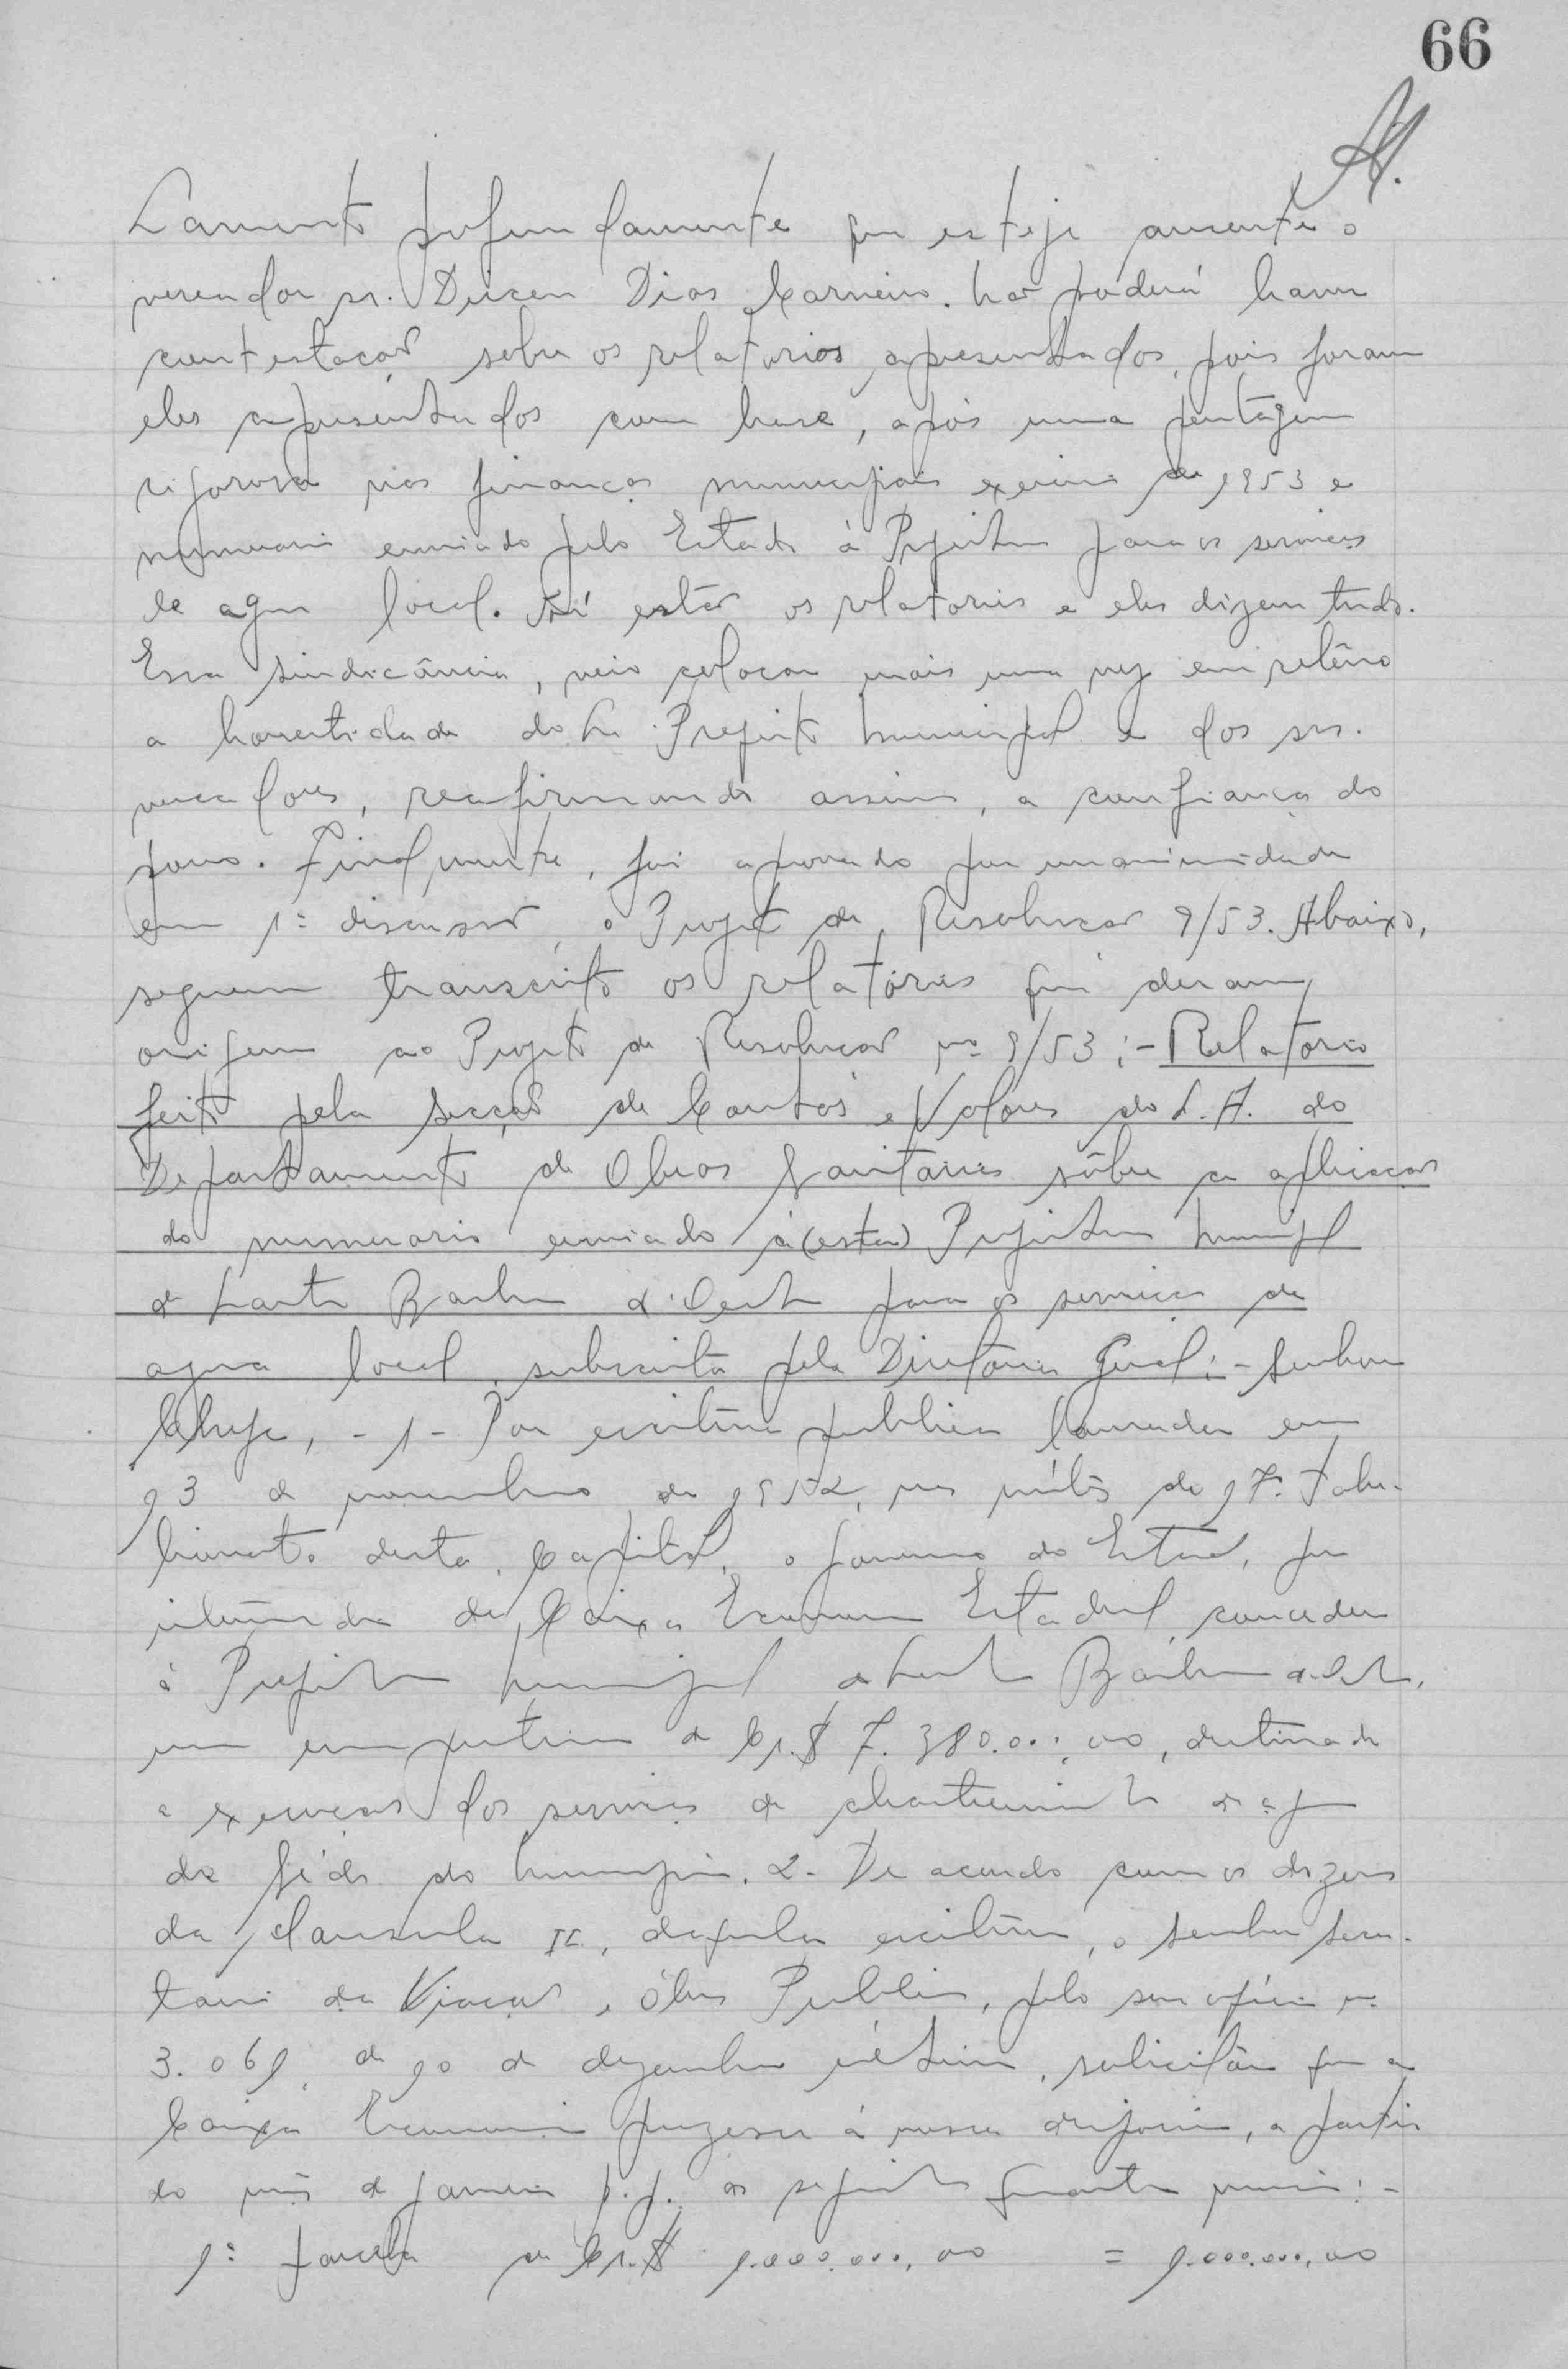 66
Lamento profundamente que esteja ausente o
vereador sr. Dirceu Dias Carneiro. Não poderá haver
contestação sobre os relatorios apresentados, pois foram
eles apresentados com base, após uma
rigorosa nas finanças municipais exercicio de 1953 e
numerario enviado pelo Estado á Prefeitura para os serviços
de agua local. Aí estão os relatorios e eles dizem tudo.
Essa sindicância, veio colocar mais uma vez em relêvo
a honestidade do Sr. Prefeito Municipal e dos srs.
vereadores, reafirmando assim, a confiança do
povo. Finalmente, foi aprovado por unanimidade
em 1ª discussão, o Projeto de Resolução 9/53. Abaixo,
seguem transcrito os relatórios que deram
origem ao Projeto de Resolução nº 9/53:- Relatorio
feito pela Secção de Contas e Valores do S.A. do
Departamento de Obras Sanitarias sôbre a aplicação
do numerario enviado á (esta) Prefeitura Municipal
de Santa Barbara d'Oeste para os serviços de
agua local, subscrita pela Diretoria Geral:- Senhor
Chefe, - 1 - Por escritura publica lavrada em
13 de novembro de 1952, nas nótas do 17º Tabe-
lionato desta Capital, o Governo do Estado, por
intermédio da Caixa Economica Estadual, concedeu
á Prefeitura Municipal de Santa Barbara d'Oeste,
um emprestimo de Cr.$ 7.380.000,00, destinado
a execução dos serviços de abastecimento de agua
da séde do Municipio. 2 - De acordo com os dizeres
da clausula II, daquela escritura, o senhor Secre-
tario da Viação e Obras Publicas, pelo seu oficio nº
3.061, de 10 de dezembro ultimo, solicitou que a
Caixa Economica puzesse á nossa disposição, a partir
do mês de janeiro p.p. as seguintes quantias:-
1ª parcela de Cr.$ 1.000.000,00 = 1.000.000,00